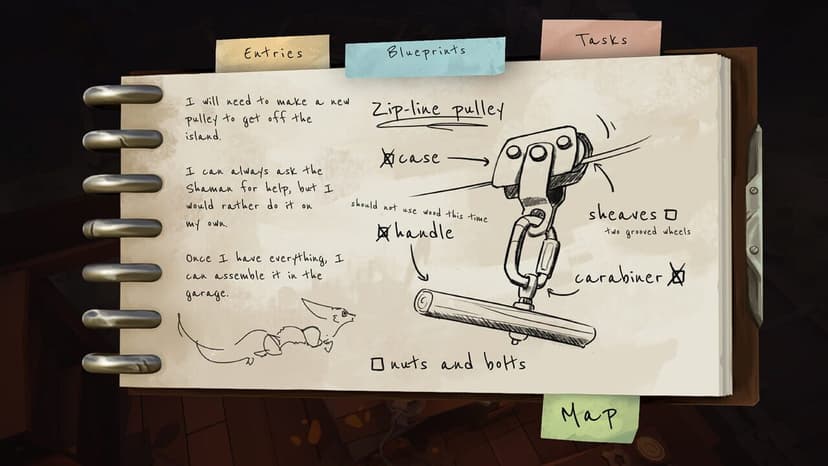 Entries
Blueprints
Tasks
I will need to make a new
pulley to get off the
island.
I can always ask the
Shaman for help, but I
would rather do it on
my own.
Once I have everything, I
can assemble it in the
garage.
Zip-line pulley
case
should not use wood this time
handle
sheaves
two grooved wheels
carabiner
nuts and bolts
Map